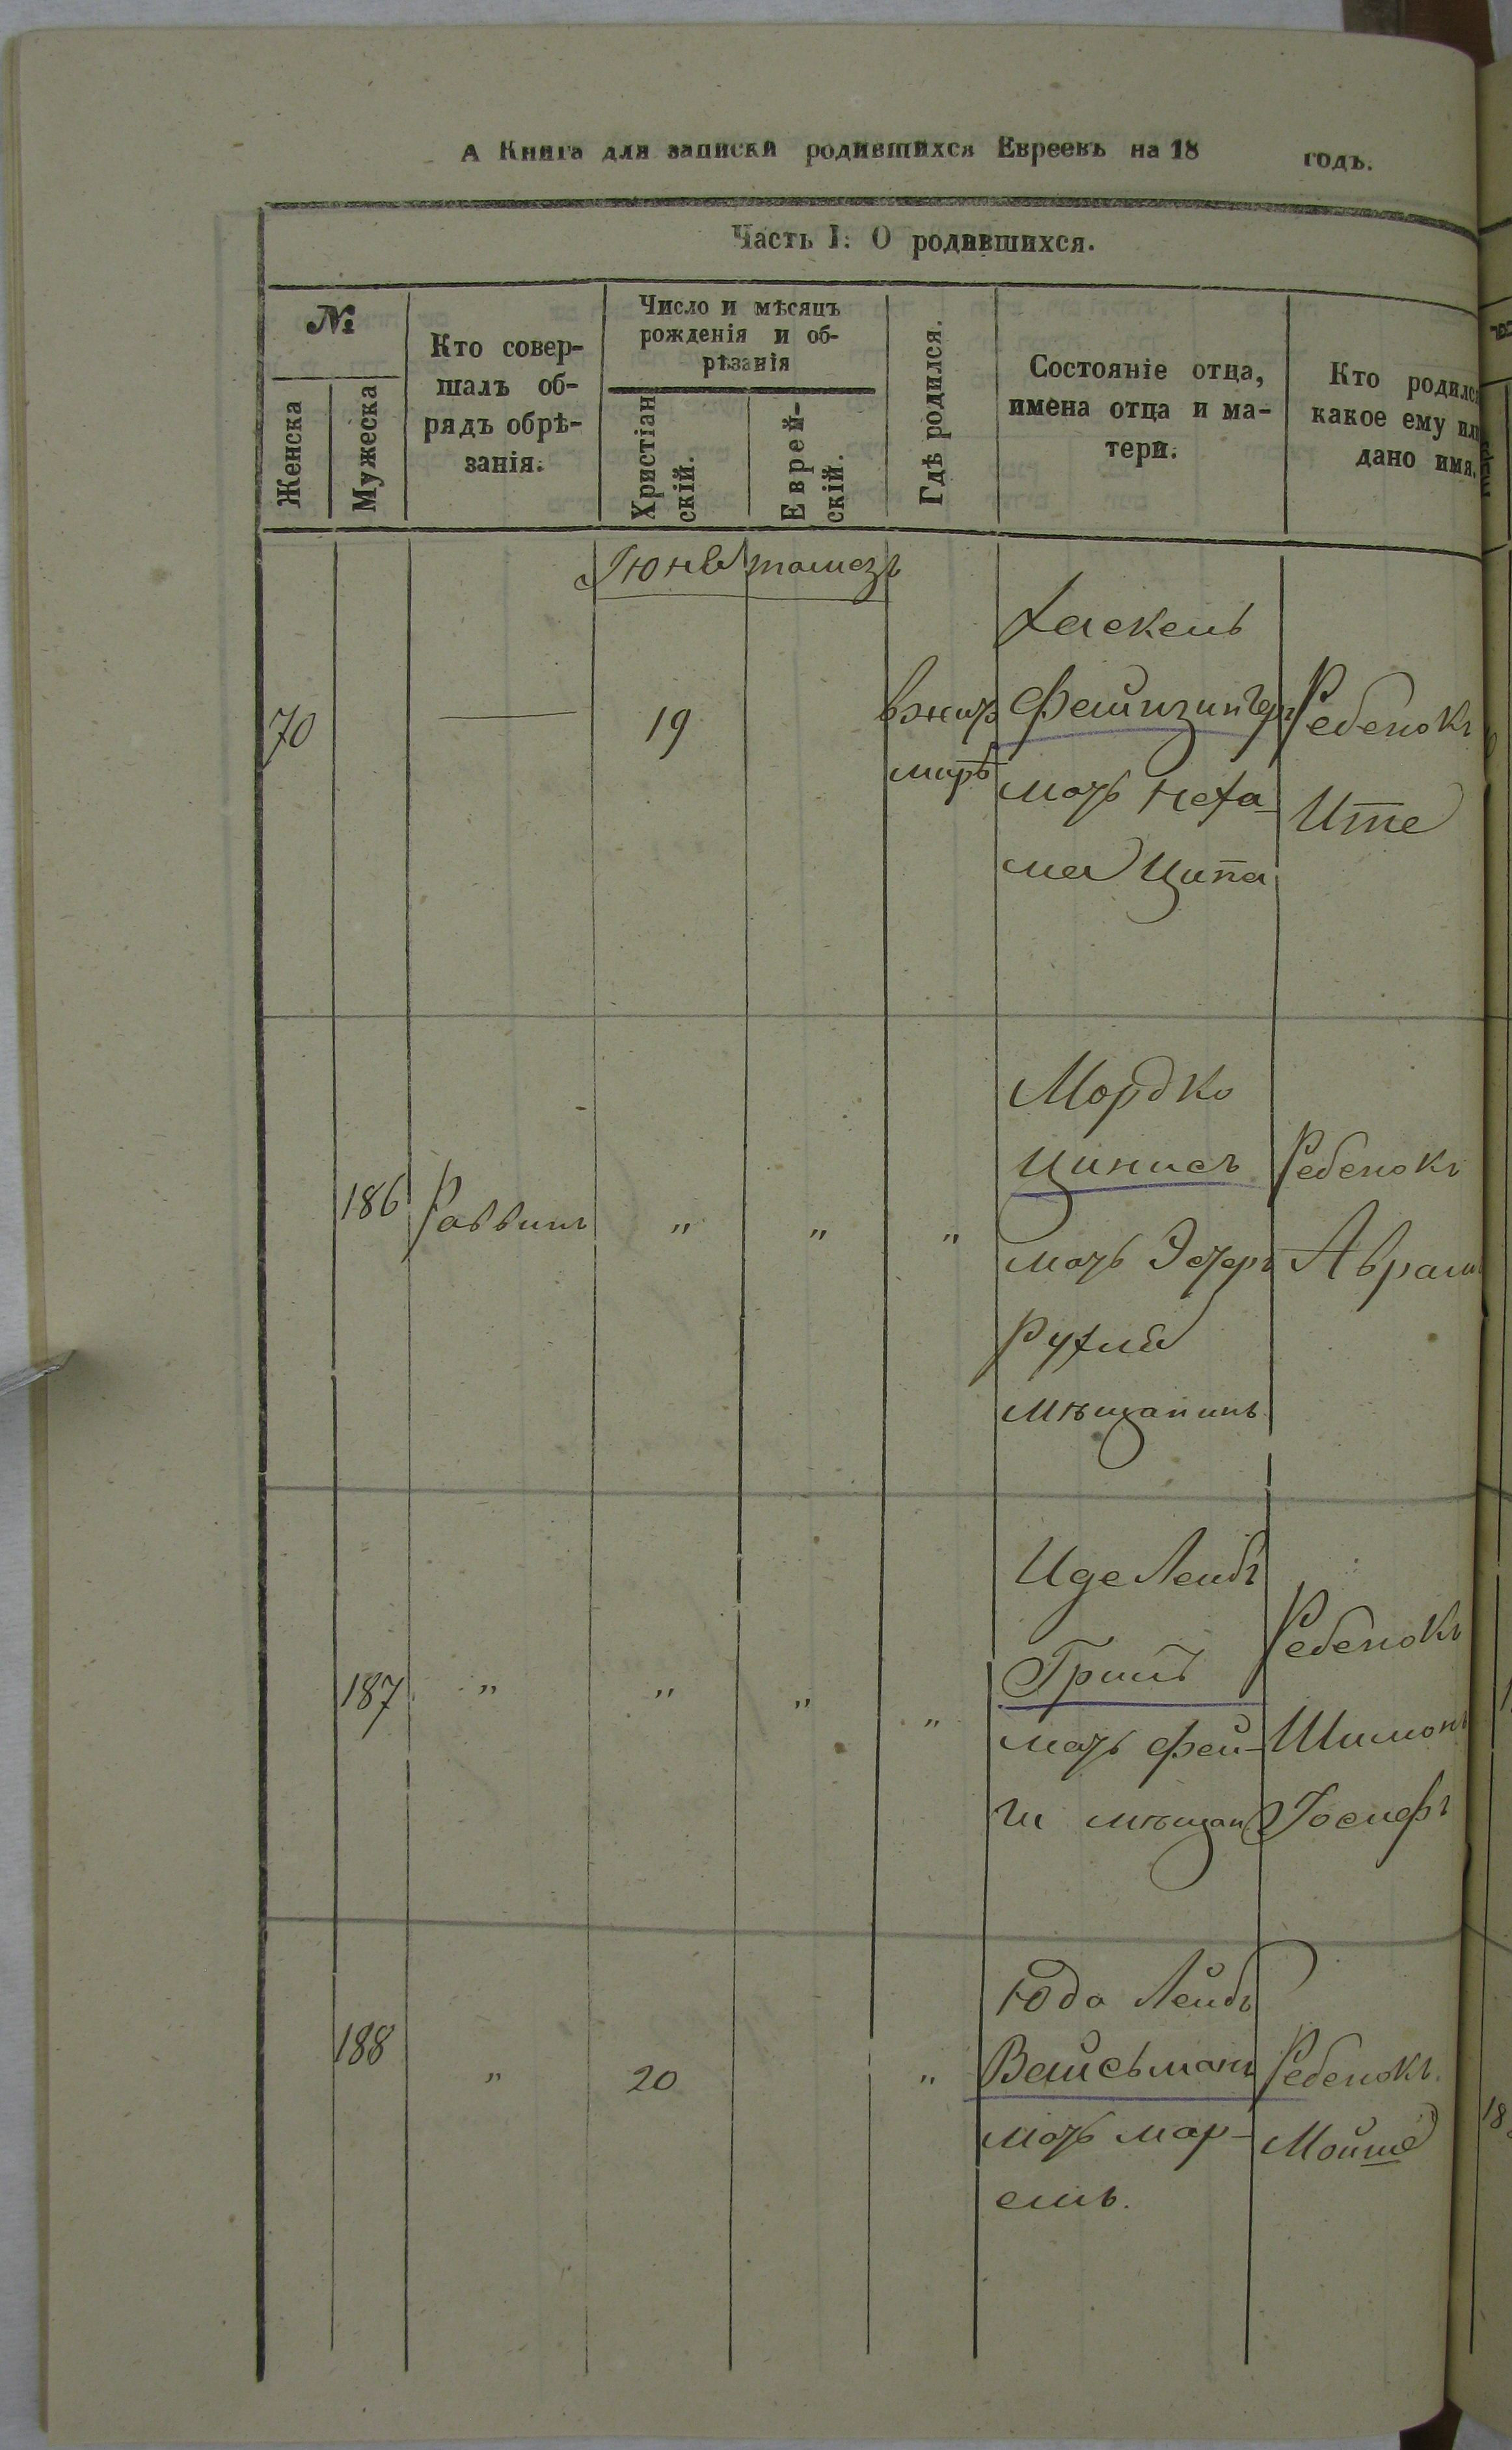 А Книга для записки родившихся Евреевъ на 18 годъ.
Часть I. О родившихся.
№
Женска
Мужеска
Кто совер-
шалъ об-
рядъ обрѣ-
занія.
Число и мѣсяцъ
рожденія и об-
рѣзанія
Христіан
скій.
Еврей-
скій.
Гдѣ родился.
Состояніе отца,
имена отца и ма-
тери.
Кто родился
какое ему или
дано имя.
Іюнь тамезъ
70
19
вжит
мирѣ
Хаскель
Файнзингеръ
мать Неха
ма Ципа
Ребенокъ
Ите
186
Раввинъ
"
"
"
Мордко
Цинисъ
мать Эстеръ
Рухля
мѣщанинъ
Ребенокъ
Аврамъ
187
"
"
"
"
Иде Лейбъ
мать Фей-
ги мѣщан
Ребенокъ
Шимонъ
Іосифъ
188
"
20
"
Юдо Лейбъ
Вайсьманъ
мать мар-
емь.
Ребенокъ.
Мойше